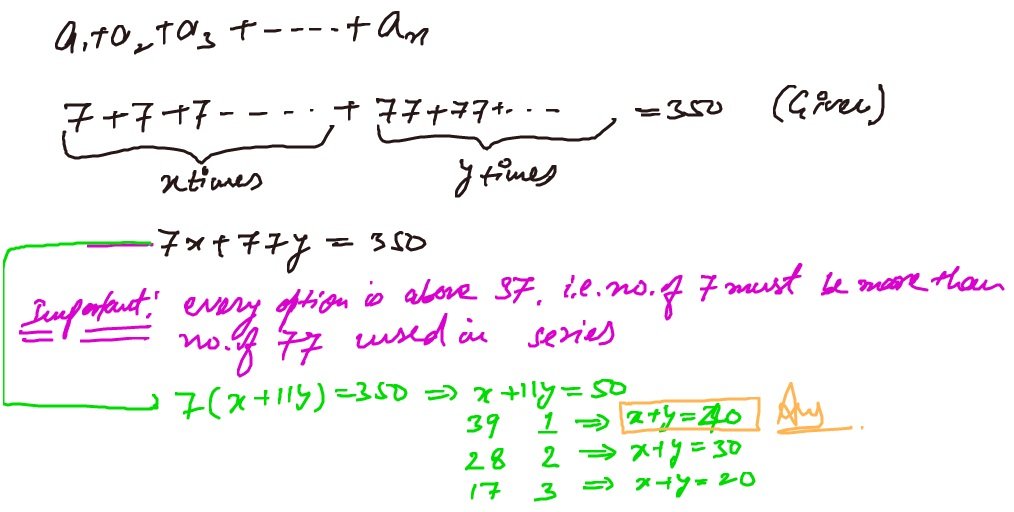 a₁+a₂+a₃ +-----+ aₙ
7+7+7---- ·· + 77+77+·-- =350 (Given)
x times y times
7x+77y = 350
Important! every option is above 37, i.e. no. of 7 must be more than
no. of 77 used in series
7(x+11y)=350 ⇒ x+11y=50
39 1 ⇒ x+y=40 Ans
28 2 ⇒ x+y=30
17 3 ⇒ x+y=20